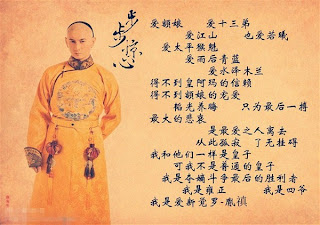 步步惊心
爱額娘 爱十三弟
爱江山 也爱若曦
爱太平猴魁
爱雨后青蓝
爱水泽木兰
得不到皇阿玛的信赖
得不到額娘的宠爱
韬光养晦 只为最后一搏
最大的悲哀
是最爱之人离去
从此孤寂 了无挂碍
我和他们一样是皇子
可我不是普通的皇子
我是夺嫡斗争最后的胜利者
我是雍正 我是四爷
我是爱新觉罗·胤禛